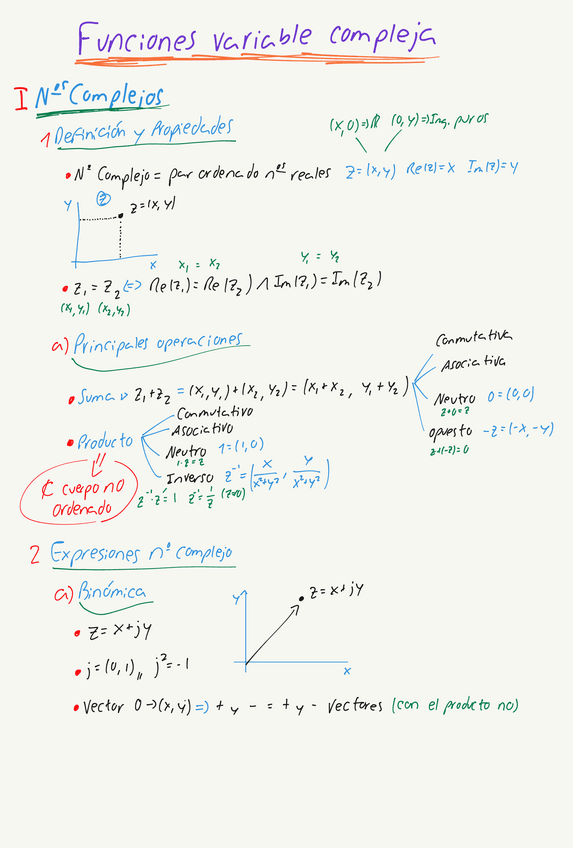 Funciones variable compleja
I Nºs Complejos
1 Definición y Propiedades
(x,0)=>ℝ (0,y)=>Img. puros
• Nº Complejo = par ordenado nºs reales z=(x,y) Re(z)=x Im(z)=y
y z z=(x,y)
x
x₁ = x₂ y₁ = y₂
• z₁ = z₂ <=> Re(z₁)=Re(z₂) ∧ Im(z₁)=Im(z₂)
(x₁,y₁) (x₂,y₂)
a) Principales operaciones
• Suma z₁+z₂ = (x₁,y₁)+(x₂,y₂) = (x₁+x₂, y₁+y₂)
Conmutativa
Asociativa
Neutro 0=(0,0)
z+0=z
opuesto -z=(-x,-y)
z+(-z)=0
• Producto
Conmutativo
Asociativo
Neutro 1=(1,0)
1·z=z
Inverso z⁻¹=(x/(x²+y²), y/(x²+y²))
z⁻¹·z=1 z⁻¹=1/z (z≠0)
ℂ cuerpo no
ordenado
2 Expresiones nº complejo
a) Binómica
• z=x+jy
• j=(0,1), j²=-1
y z=x+jy
x
• Vector 0→(x,y) => + y - = + y - vectores (con el producto no)